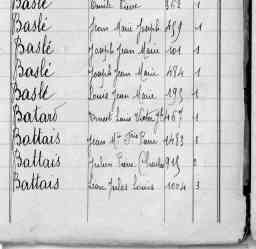 Baslé Emile Pierre 362 1
Baslé Jean Marie Joseph 459 1
Baslé Joseph Jean Marie 101 1
Baslé Joseph Jean Marie 484 1
Baslé Louis Jean Marie 193 1
Batard Ernest Louis Victor 467 1
Battais Jean Mie Pierre 1483
Battais Julien Pierre Charles 919 2
Battais Léon Jules Louis 1004 3